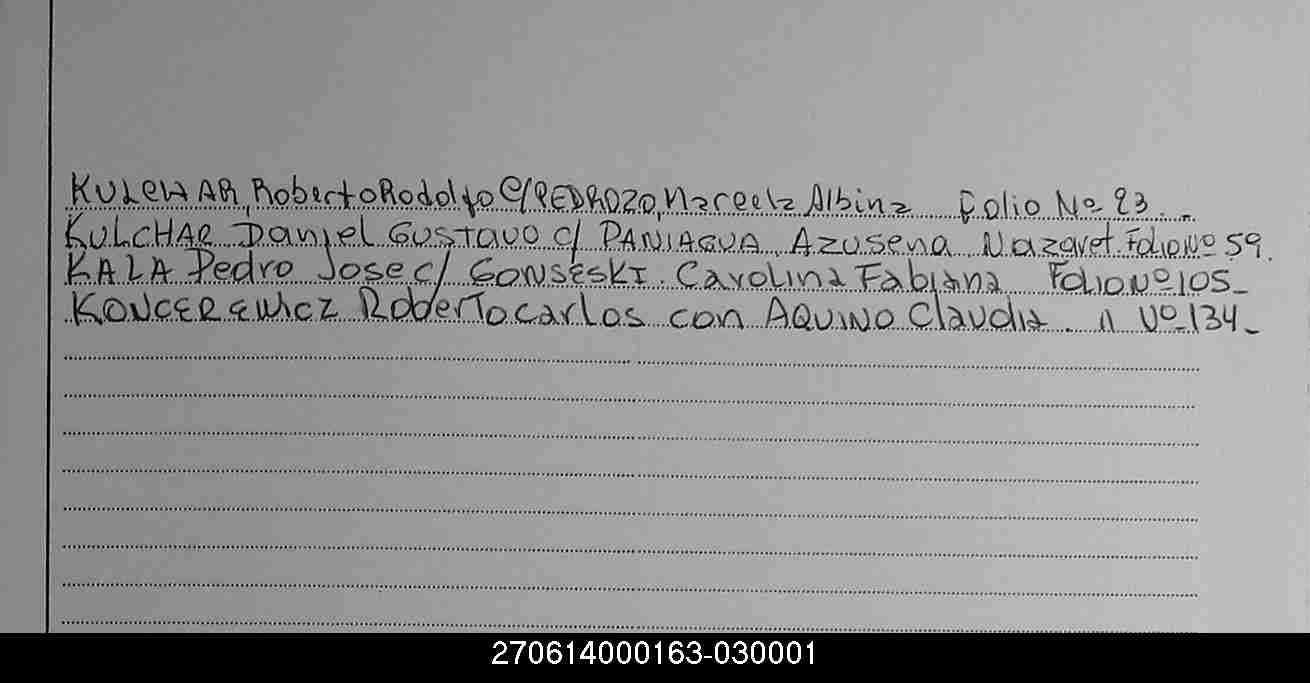 KULEWAR, Roberto Rodolfo C/ PEDROZO, Marcela Albina Folio Nº 23..
KULCHAR Daniel GUSTAVO c/ PANIAGUA, Azusena Nazaret. Folio Nº 59.
KALA Pedro Jose c/ GONSESKI. Carolina Fabiana Folio Nº 105_
KONCEREWICZ Roberto carlos con AQUINO Claudia. " Nº 134_
270614000163-030001